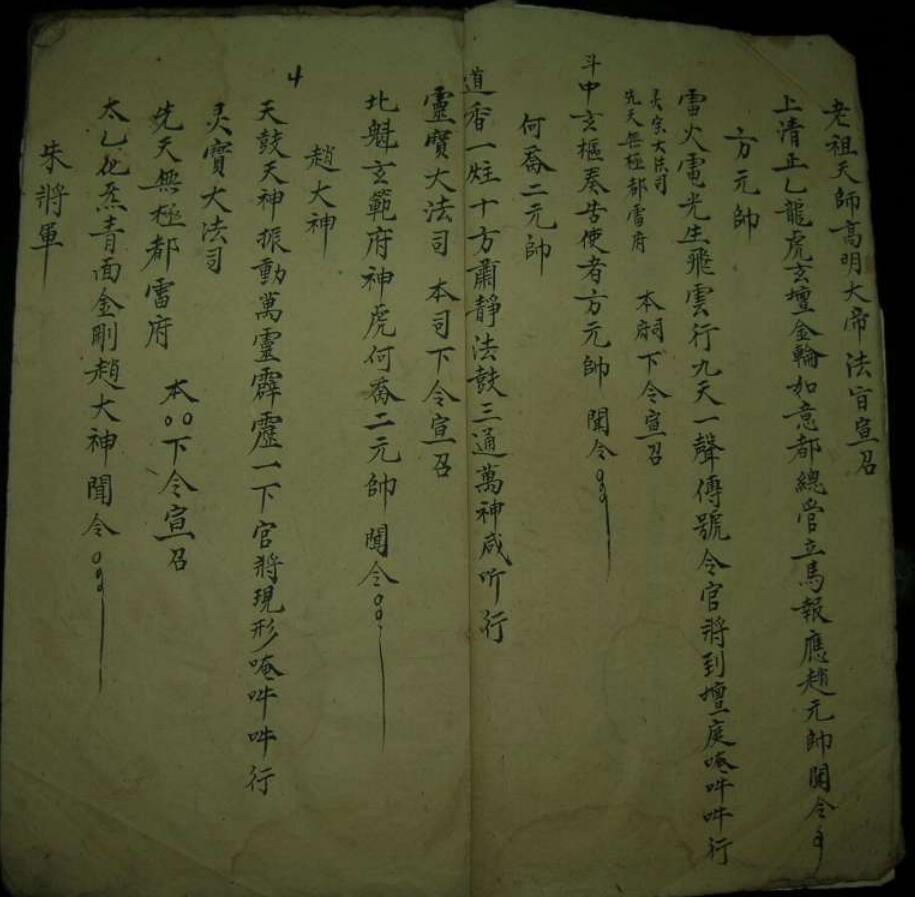 老祖天師高明大帝 法旨宣召
上清正乙龍虎玄壇金輪如意都總管立馬報應趙元帥 聞令
方元帥
雷火電光生飛雲行九天一聲傳號令官將到壇庭唵吽吽行
灵宗大法司
先天無極都雷府
本府司下令宣召
斗中玄樞奏告使者方元帥 聞令
何喬二元帥
道香一炷十方肅静法鼓三通萬神咸听行
靈寶大法司 本司下令宣召
北魁玄範府神虎何喬二元帥 聞令
趙大神
4
天鼓天神振動萬靈霹靂一下官將現形唵吽吽行
灵寶大法司
先天無極都雷府
本〇〇下令宣召
太乙化炁青面金剛趙大神 聞令
朱將軍